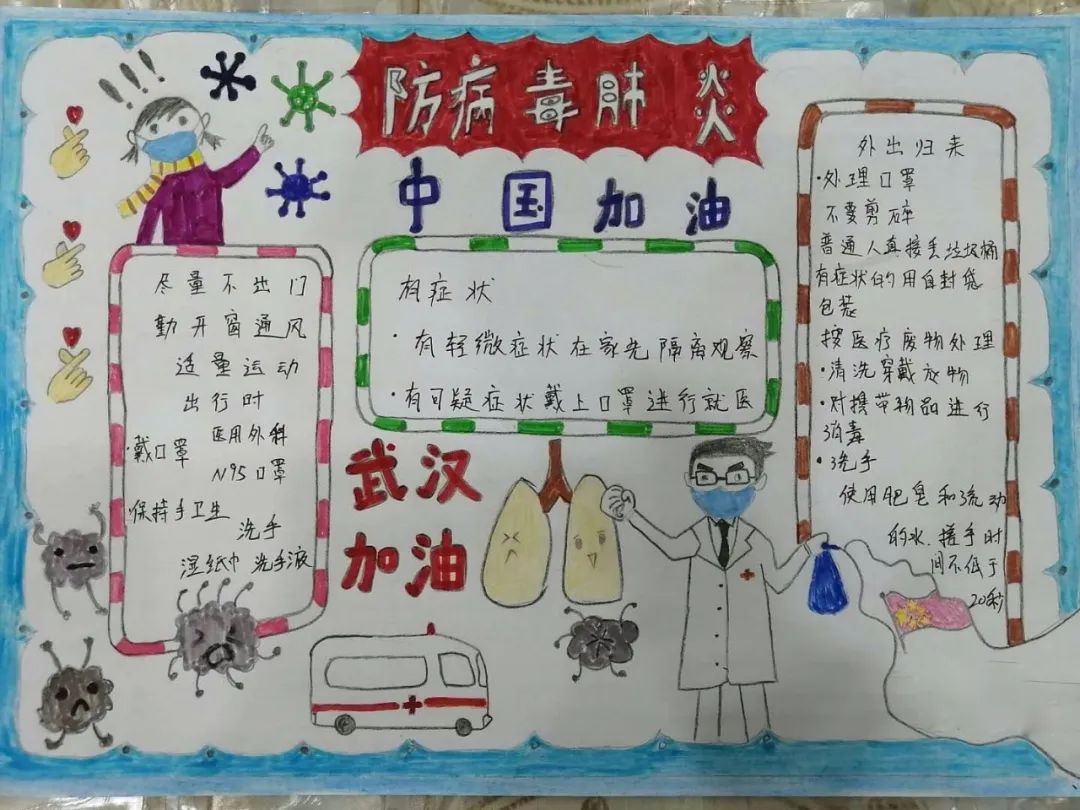 防病毒肺炎
中国加油
尽量不出门
勤开窗通风
适量运动
出行时
·戴口罩 医用外科
N95口罩
·保持手卫生
洗手
湿纸巾 洗手液
有症状
·有轻微症状在家先隔离观察
·有可疑症状戴上口罩进行就医
武汉
加油
外出归来
·处理口罩
不要剪碎
普通人直接丢垃圾桶
有症状的用自封袋
包装
按医疗废物处理
·清洗穿戴衣物
·对携带物品进行
消毒
·洗手
使用肥皂和流动
的水.搓手时
间不低于
20秒